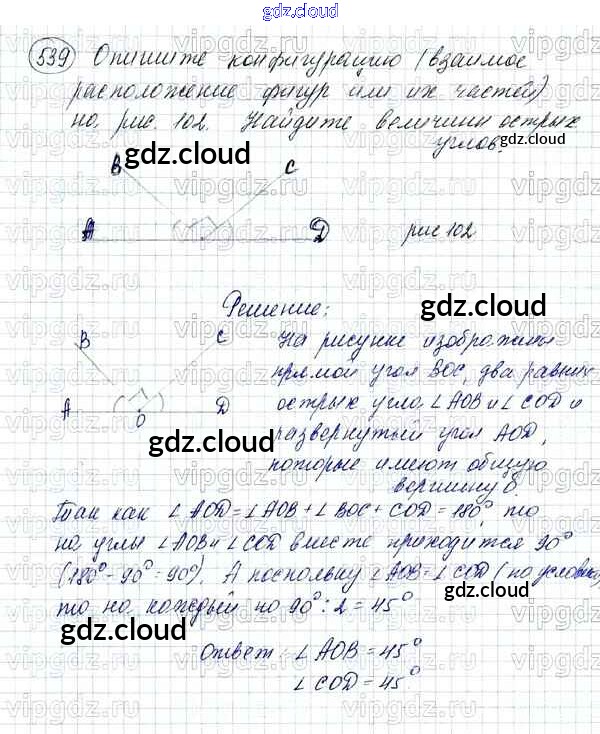 gdz.cloud
539 Опишите конфигурацию (взаимое
расположение фигур или их частей)
на рис. 102. Найдите величины острых
углов.
gdz.cloud
gdz.cloud
B C
gdz.cloud
A D рис 102
Решение:
gdz.cloud
B C На рисунке изображён
прямой угол BOC, два равных
A O D острых угла ∠AOB и ∠COD и
gdz.cloud
развернутый угол AOD,
gdz.cloud
которые имеют общую
вершину O.
Так как ∠AOD = ∠AOB + ∠BOC + COD = 180°, то
на углы ∠AOB и ∠COD вместе приходится 90°
(180° - 90° = 90°). А поскольку ∠AOB = ∠COD (по условию)
gdz.cloud
то на каждый по 90° : 2 = 45°
gdz.cloud
Ответ: ∠AOB = 45°
∠COD = 45°
gdz.cloud